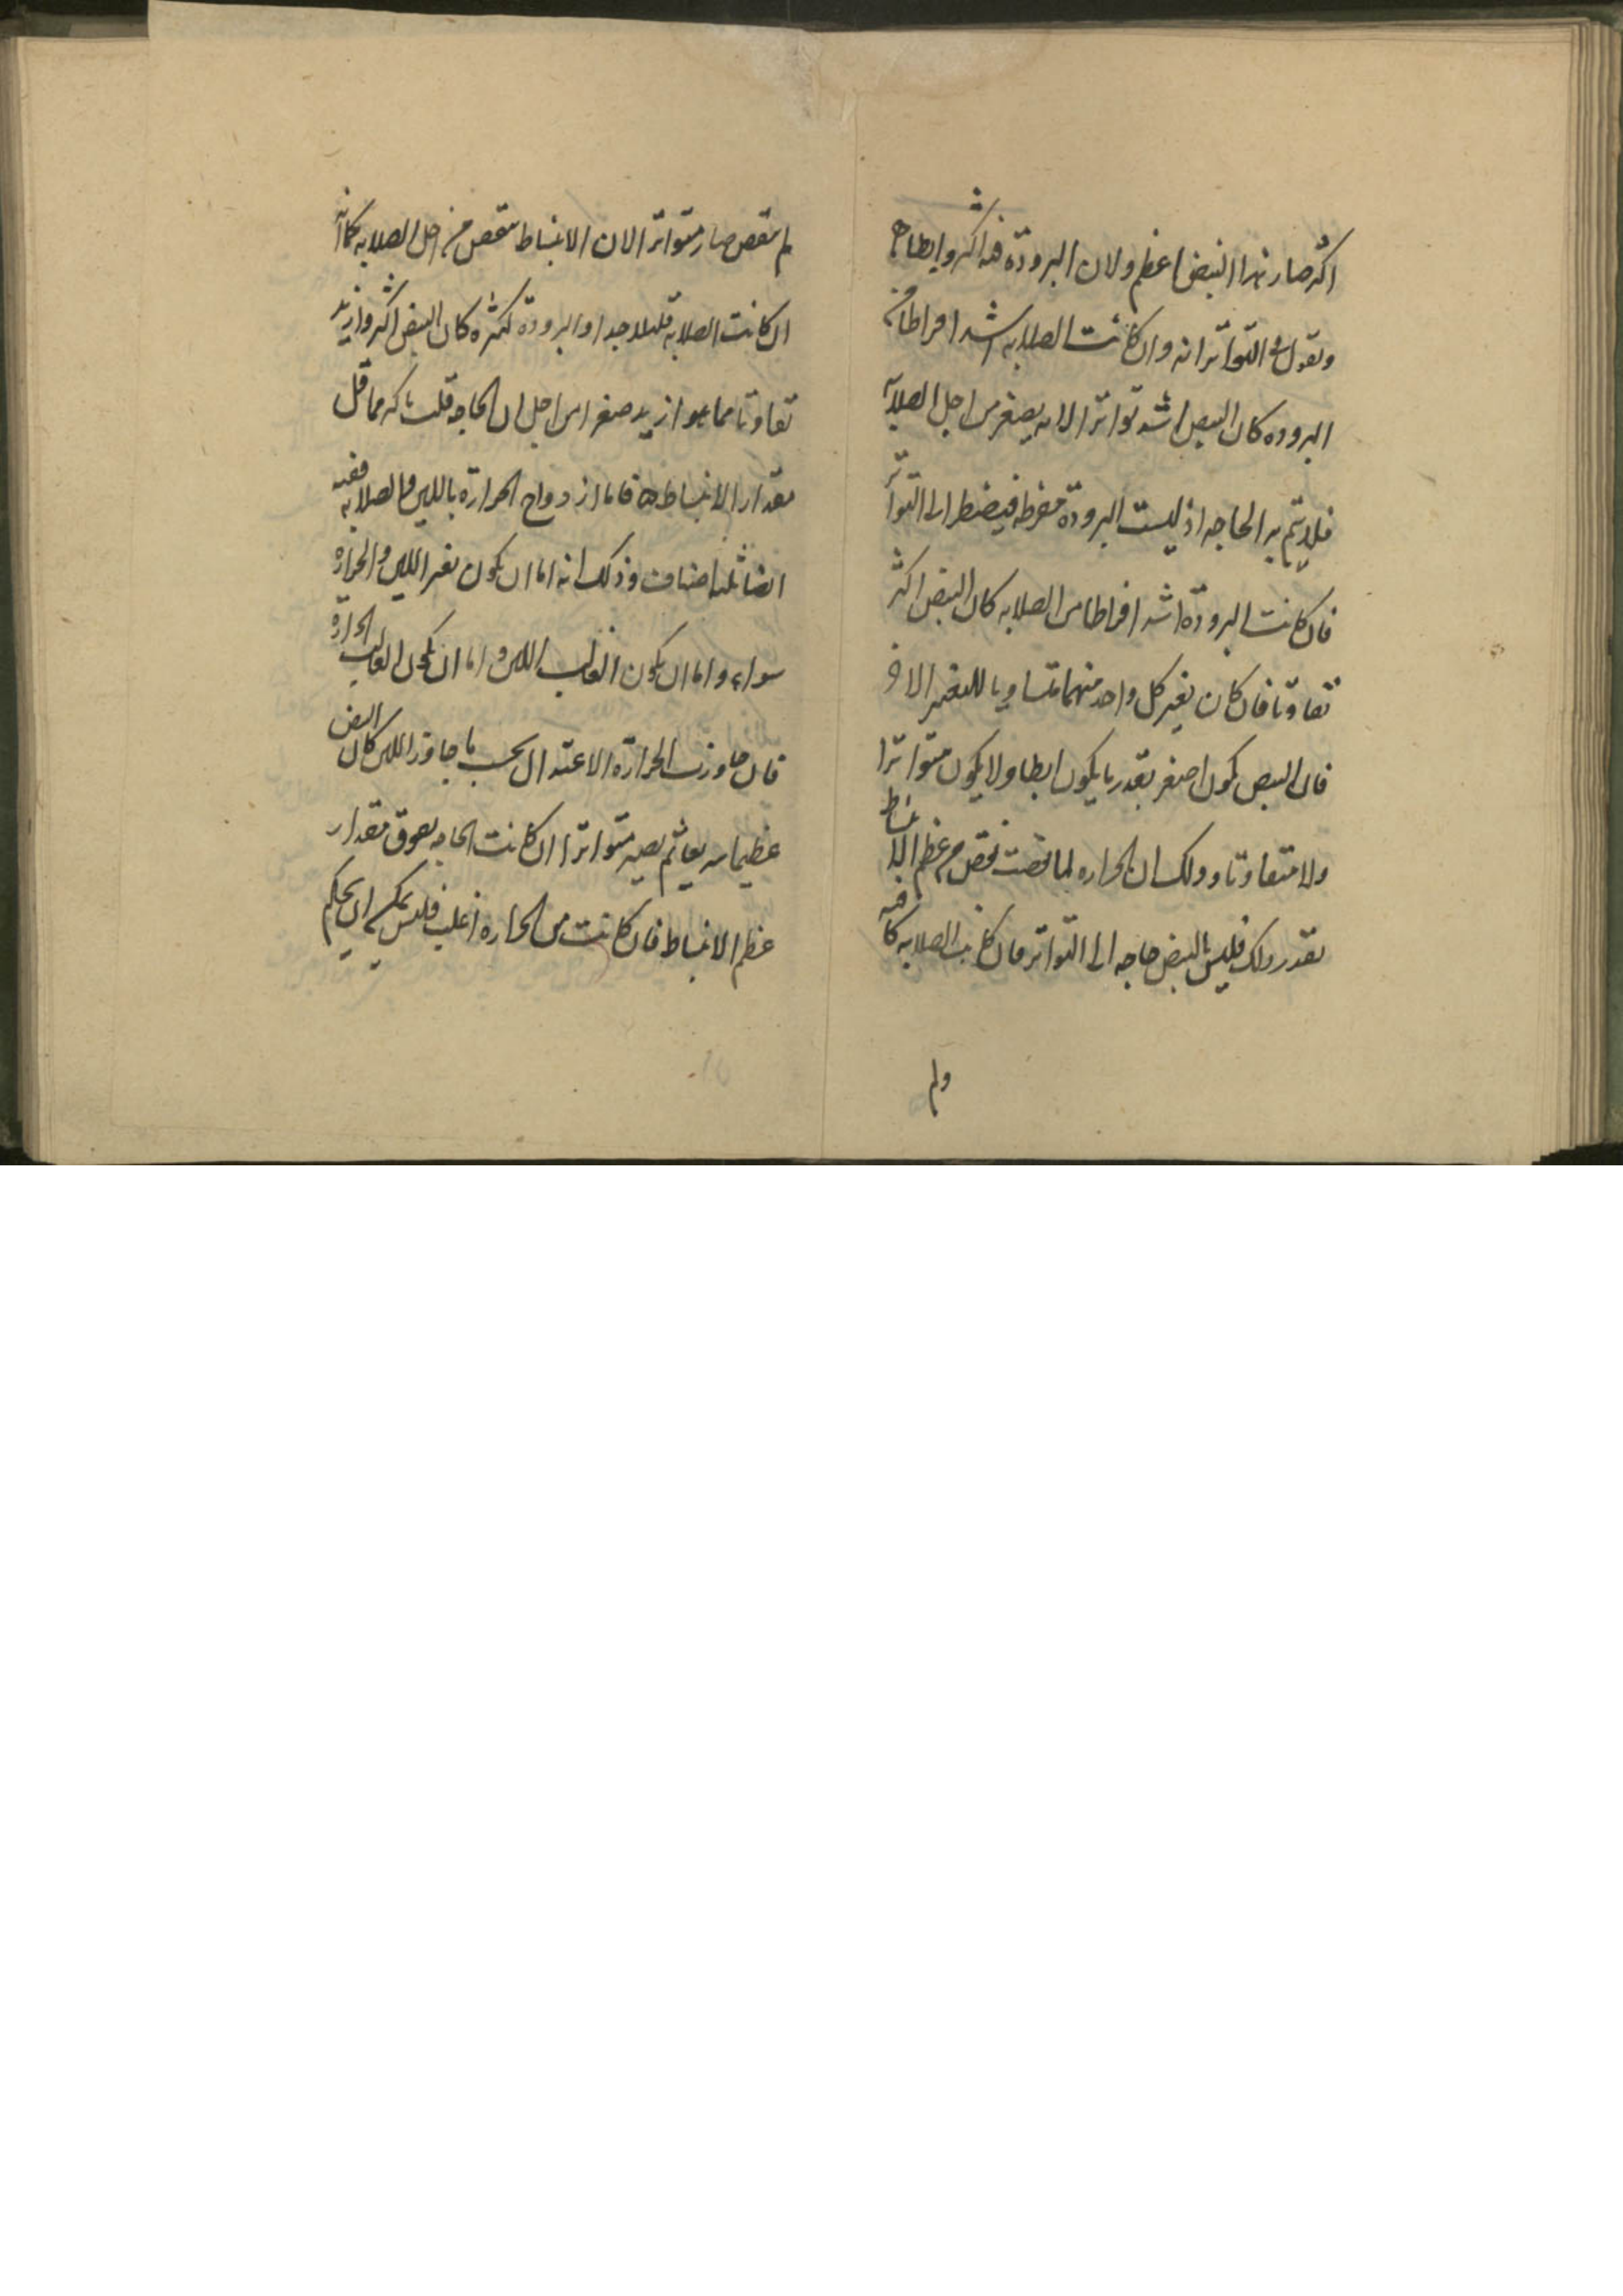 اكثر صار هذا النبض اعظم ولان البرودة فيه اكثر وابطا
ونقول في التواتر انه وان كانت الصلابه اشد افراطا من
البروده كان النبض اشد تواترا لانه يصغر من اجل الصلابه
فلا يتم به الحاجه اذ ليست البرودة مفرطه فيضطر الى التواتر
فان كانت البرودة اشد افراطا من الصلابه كان النبض اكثر
تفاوتا فان كان تغير كل واحد منهما متساويا للتغير الاخر
فان النبض يكون اصغر بقدر ما يكون ابطا ولا يكون متواترا
ولا متفاوتا وذلك ان الحراره لما نقصت نقص من عظم الانبساط
بقدر ذلك فليس بالنبض حاجه الى التواتر فان كانت الصلابه كافيه
ولم
لم تنقص صار متواترا لان الانبساط ينقص من اجل الصلابه كما انه
ان كانت الصلابه قليله جدا والبرودة كثيره كان النبض اكثر وازيد
تفاوتا مما هو ازيد صغرا من اجل ان الحاجه قلت باكثر مما قل
مقدار الانبساط فاما ازدواج الحرارة باللين والصلابه ففيه
ايضا ثلثه اصناف وذلك انه اما ان يكون تغير اللين والحرارة
سواء واما ان يكون الغالب اللين واما ان يكون الغالب الحرارة
فان جاوزت الحرارة الاعتدال بحسب ما جاوز اللين كان النبض
عظيما سريعا ثم يصير متواترا ان كانت الحاجه يفوق مقدار
عظم الانبساط فان كانت من الحراره اغلب فليس يمكن ان يحكم